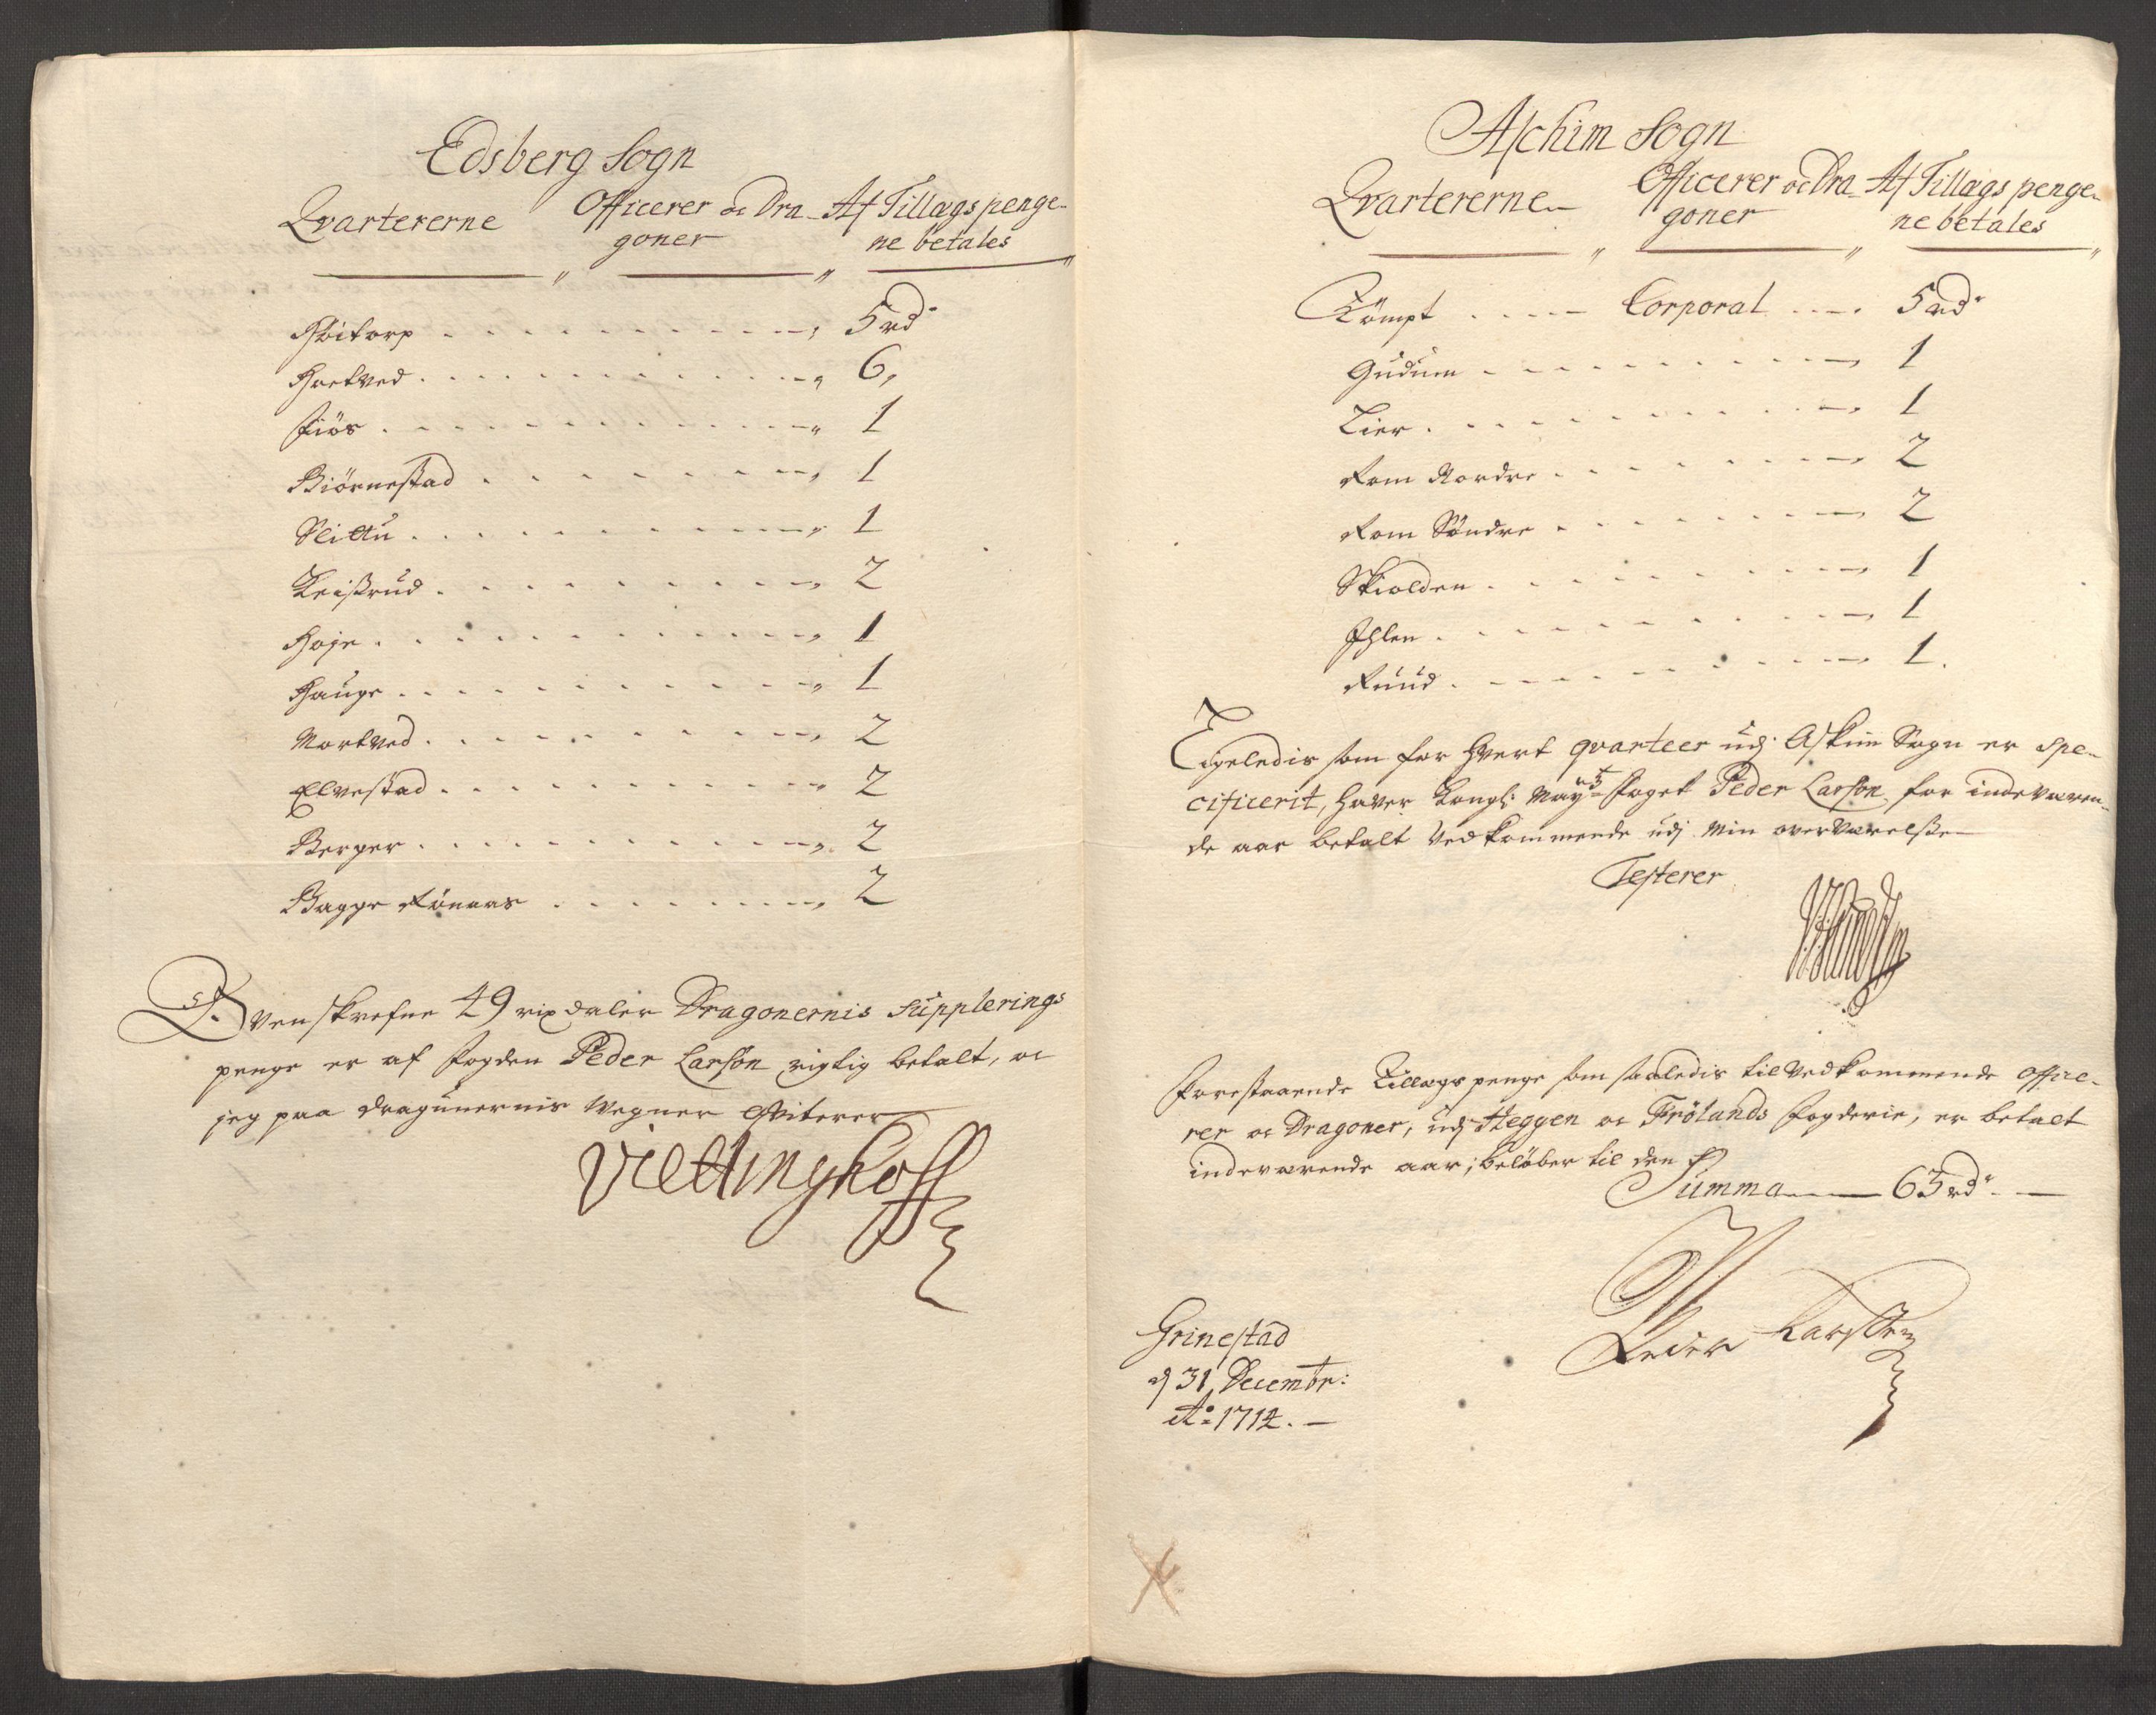 Edsberg Sogn
Qvartererne
Officerer oc Dra-
goner
Af Tillægs penge-
ne betales
Høitorp 5 rd
Hvetved 6
Fiøs 1
Biørnestad 1
Slittu 1
Kristrud 2
Hoje 1
Hauge 1
Mortved 2
Elvestad 2
Berger 2
Bagge Rønaas 2
Ovenskrefne 49 rixdaler Dragonernis Supplerings
penge er af fogden Peder Larsøn rigtig betalt, oc
jeg paa dragunernis vegner qviterer
Viettinghoff
Aschim Sogn
Qvartererne
Officerer oc Dra-
goner
Af Tillægs penge-
ne betales
Kømpt Corporal 5 rd
Gudum 1
Lier 1
Rom Nordre 2
Rom Søndre 2
Skiolden 1
Ihlen 1
Ruud 1
Ligeledis som for hvert qvarteer udj Askim Sogn er spe-
cificerit, haver Kongl: Mayts foget Peder Larsøn, for indeværen-
de aar betalt vedkommende udj min overværelsse
Testerer
Forestaaende Tillægs penge som saaledis til vedkommende office-
rer oc Dragoner, udj Heggen oc Frølands fogderie, er betalt
indeværende aar, beløber til den
Summa 63 rd
Grinestad
d 31 Decembr:
Ao 1712.
Peder Larssen